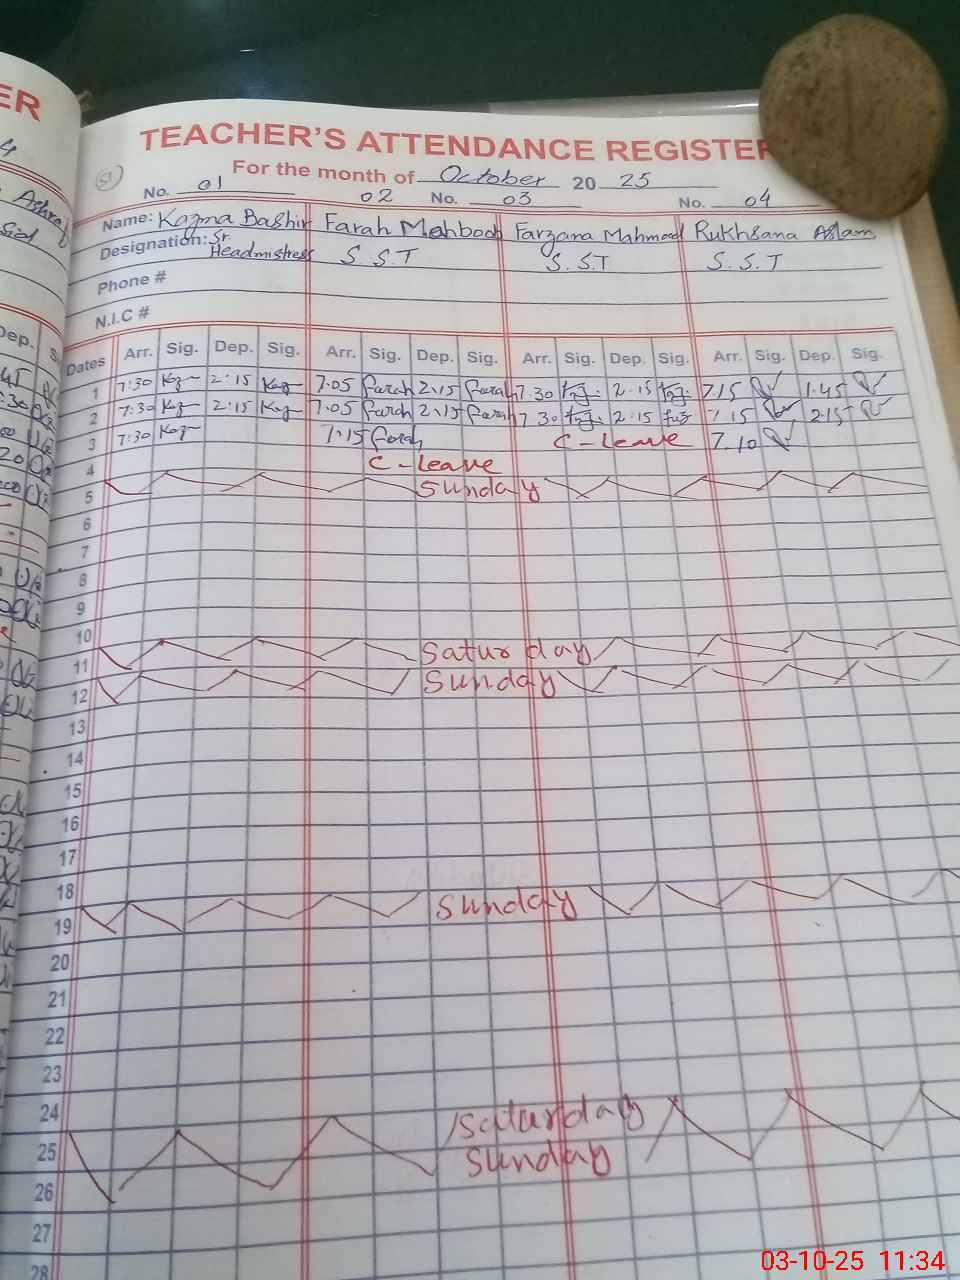 ER
TEACHER'S ATTENDANCE REGISTER
For the month of October 20 25
51
No. 01 02 No. 03 No. 04
Name: Kazma Bashir Farah Mehboob Farzana Mahmood Rukhsana Aslam
Designation: Sr. Headmistress S.S.T S.S.T S.S.T
Phone #
N.I.C #
Dates Arr. Sig. Dep. Sig. Arr. Sig. Dep. Sig. Arr. Sig. Dep. Sig. Arr. Sig. Dep. Sig.
1 7:30 Kaz 2:15 Kaz 7.05 farah 2.15 farah 7.30 2.15 7.15 1.45
2 7:30 Kaz 2:15 Kaz 7.05 farah 2.15 farah 7.30 2.15 7.15 2.15
3 7:30 Kaz 7.15 farah C-leave 7.10
4 C-leave
5 Sunday
6
7
8
9
10
11 Saturday
12 Sunday
13
14
15
16
17
18
19 Sunday
20
21
22
23
24
25 Saturday
26 Sunday
27
28
03-10-25 11:34